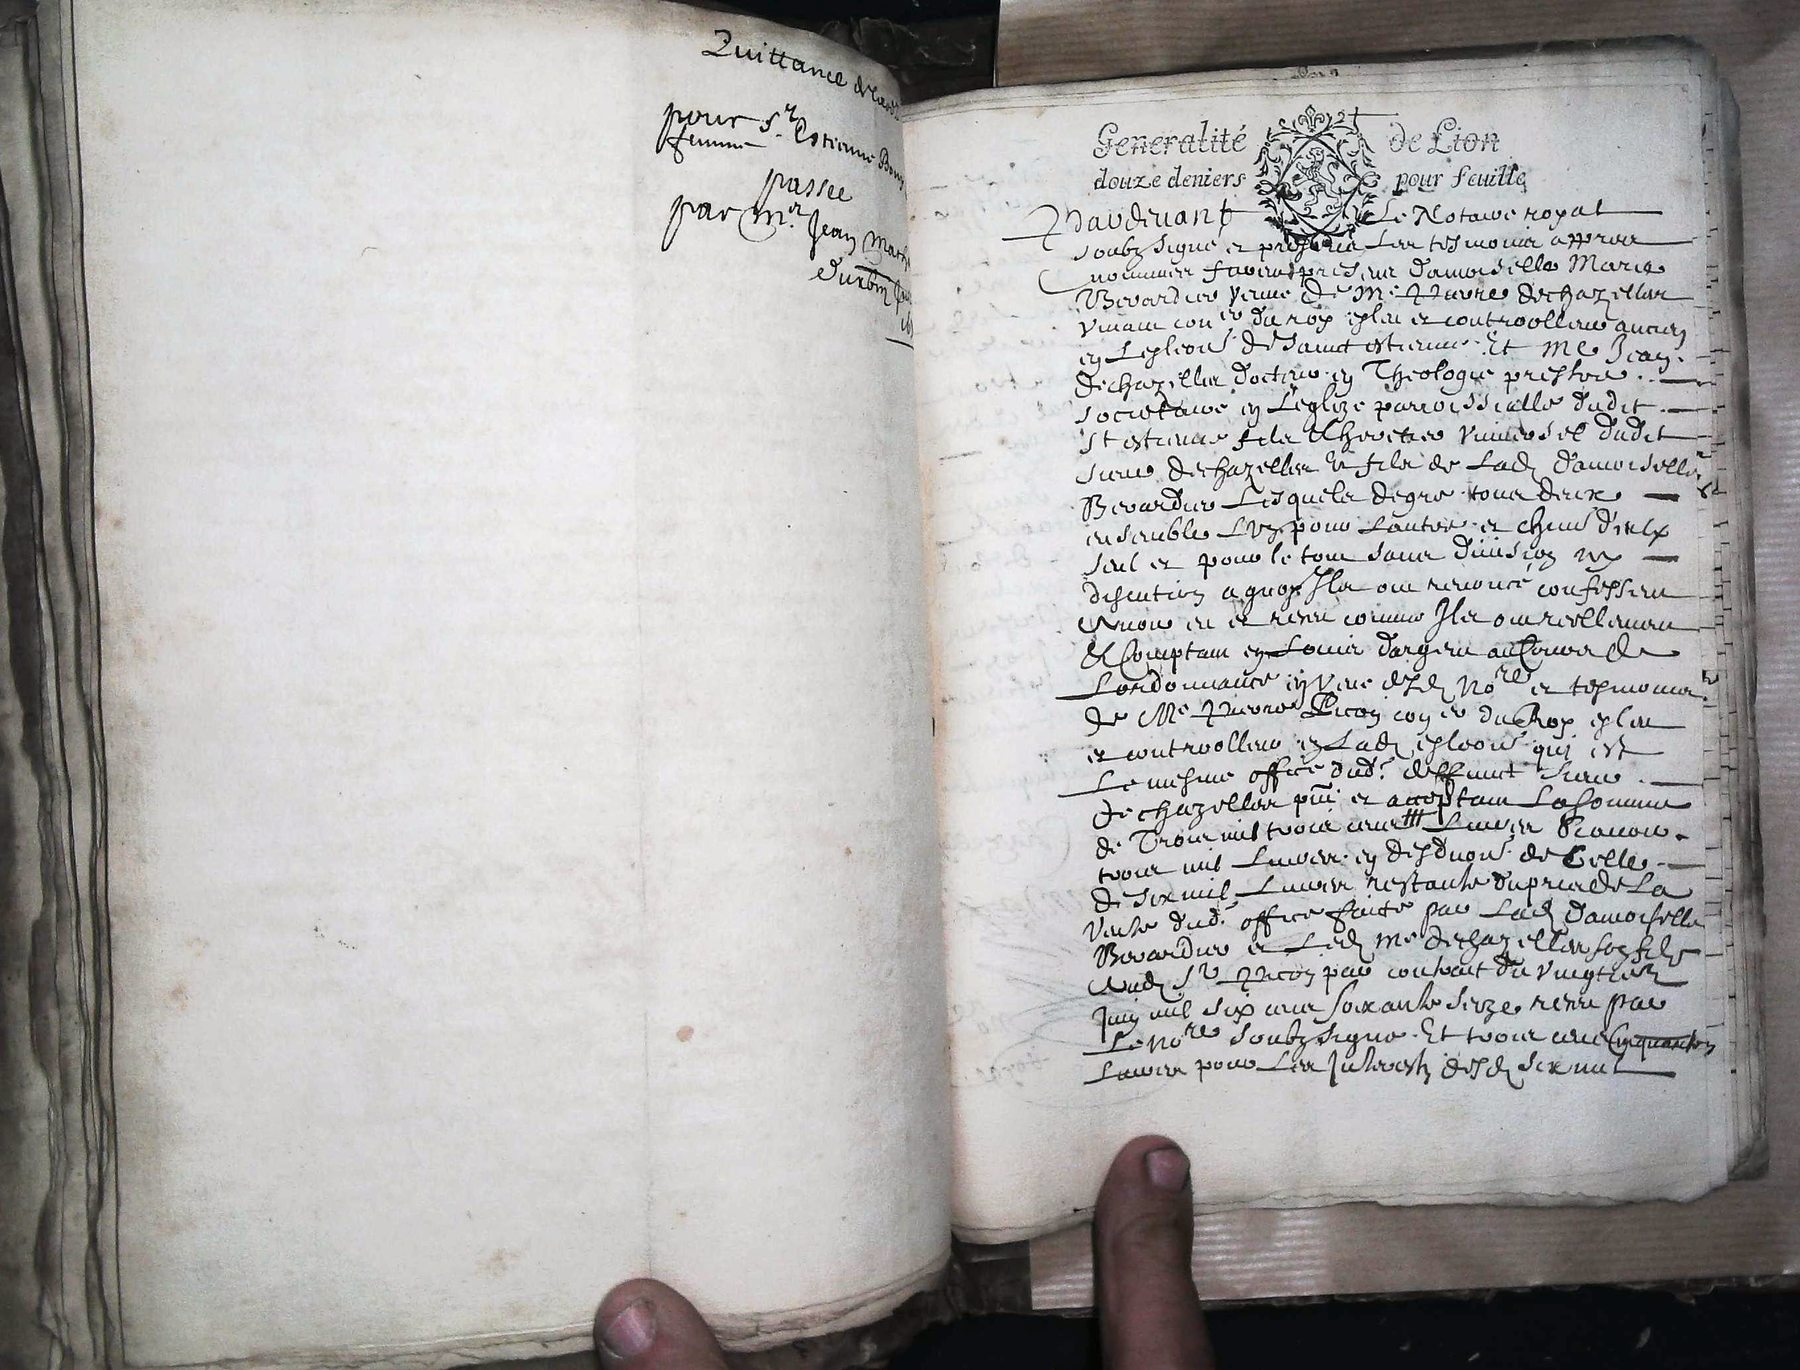 Quittance de
pour Sr Estienne
femme
passee
par Mre Jean
Durbin
Generalité de Lion
douze deniers pour feuille
Pardevant Le Notaire royal
soubzsigné et presens Les tesmoins appres
nommes furent presens damoiselle Marie
Berardier veuve de Me Pierre dechazelles
vivant coner du roy esleu et controolleur ancien
en Lesleon de sainct estienne Et Me Jean
dechazelles docteur en Theologie prestre
societaire en Leglize parroissialle dudit
St estienne fils & heretier universel dudit
sieur dechazelles et fils de Lad damoiselle
Berardier Lesquels de gre tous deux
ensemble L'un pour Lautre et chun d'eulx
seul et pour le tout sans division ny
discution a quoy Ils ont renoncé confessent
avoir eu et receu comme Ils ont reellement
& Comptant en Louis dargent au Cours de
Lordonnance en veue desd Nore et tesmoins
de Me Pierre Picon coner du Roy esleu
et controolleur en Lad esleon qui est
Le mesme office dud. deffunct sieur
dechazelles pnt et acceptant La somme
de Trois mil trois cens Livres Scavoir
trois mil Livres en desduon de Celle
de six mil Livres restante du prix de La
vente dud. office faite par Lad damoiselle
Berardier et Led Me dechazelles son fils
aud Sr Picon par contrait du vingtiesme
Juin mil six cens soixante seize receu par
Le Nore soubzsigné Et trois cens
Livres pour Les Interestz desd six mil